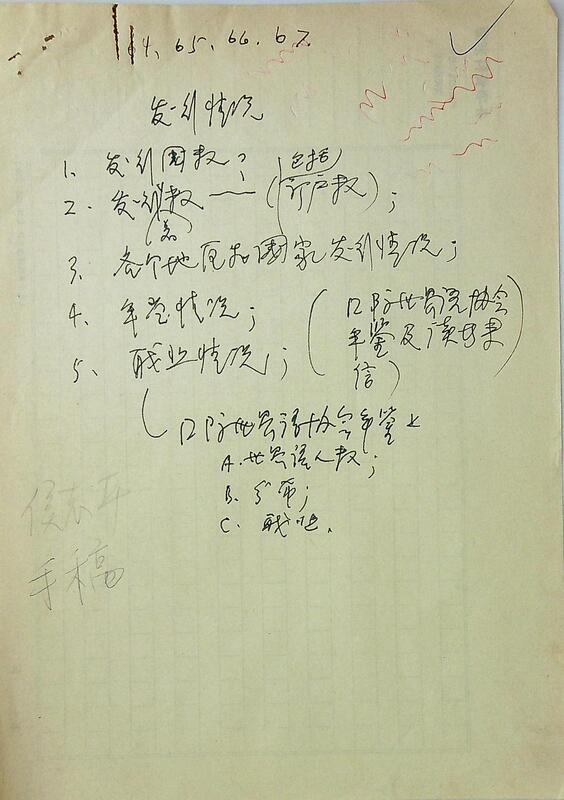 64, 65, 66, 67.
发行情况
1. 发行国数;
2. 发行数——(包括订户数);
(着)
3. 各个地区和国家发行情况;
4. 年堂情况;
5. 职业情况; (囗际世界语协会年鉴及读者来信)
(囗际世界语协会年鉴上
A. 世界语人数;
B. 分布;
C. 职业.
侯志平
手稿